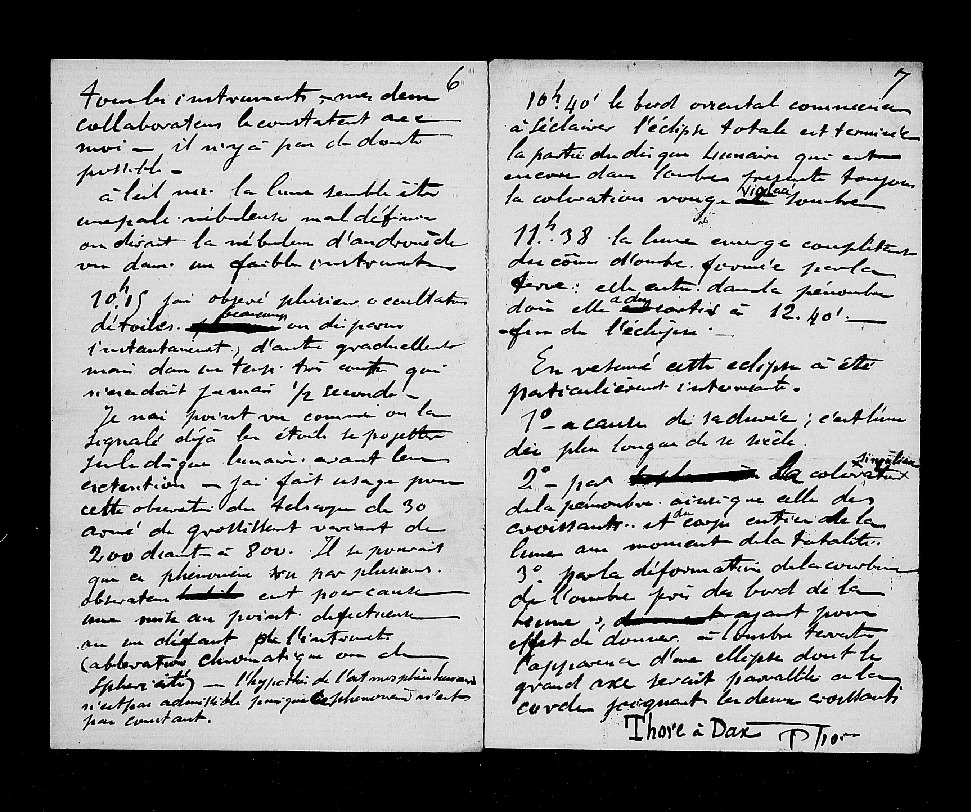 6
tous les instruments, mes deux
collaborateurs le constatent avec
moi — il n'y a pas de doute
possible —
à l'œil nu. la lune semble être
une pale nébuleuse mal définie
on dirait la nébuleuse d'andromède
vu dans un faible instrument
10h.15 j'ai observé plusieurs occultations
d'étoiles. beaucoup ont disparu
instantanément, d'autres graduellement
mais dans un temps très court qui
n'excédait jamais 1/2 seconde —
Je n'ai point vu comme on l'a
signalé déjà les étoiles se projetter
sur le disque lunaire avant leur
extention — j'ai fait usage pour
cette observation du telescope de 30
armé de grossissement variant de
200 diamt à 800. Il se pourait
que ce phénomène vu par plusieurs
observateurs eut pour cause
une mise au point defectueuse
ou un défaut de l'instrument
(abberation chromatique ou de
sphericité) — l'hypothèse de l'atmosphère lunaire
n'est pas admissible puisque le phénomène n'est
pas constant.
7
10h 40' le bord oriental commence
à s'éclairer l'éclipse totale est terminée
la partie du disque lunaire qui est
encore dans l'ombre présente toujours
la coloration rouge violacé sombre
11h.38 la lune emerge complètement
du cône d'ombre formée par la
terre : elle entre dans la pénombre
d'où elle a du sortir à 12.40'. —
— fin de l'éclipse. —
En resumé cette eclipse à été
particulièrement interressante.
1° — a cause de sa durée ; c'est l'une
des plus longues de ce siècle.
2° — par La coloration singulière
de la pénombre ainsi que celle des
croissants et du corps entier de la
lune au moment de la totalité.
3° par la déformation de la courbure
de l'ombre près du bord de la
lune ; ayant pour
effet de donner à l'ombre terrestre
l'apparence d'une ellipse dont le
grand axe serait paralléle a la
corde joignant les deux croissants
Thore à Dax Thore